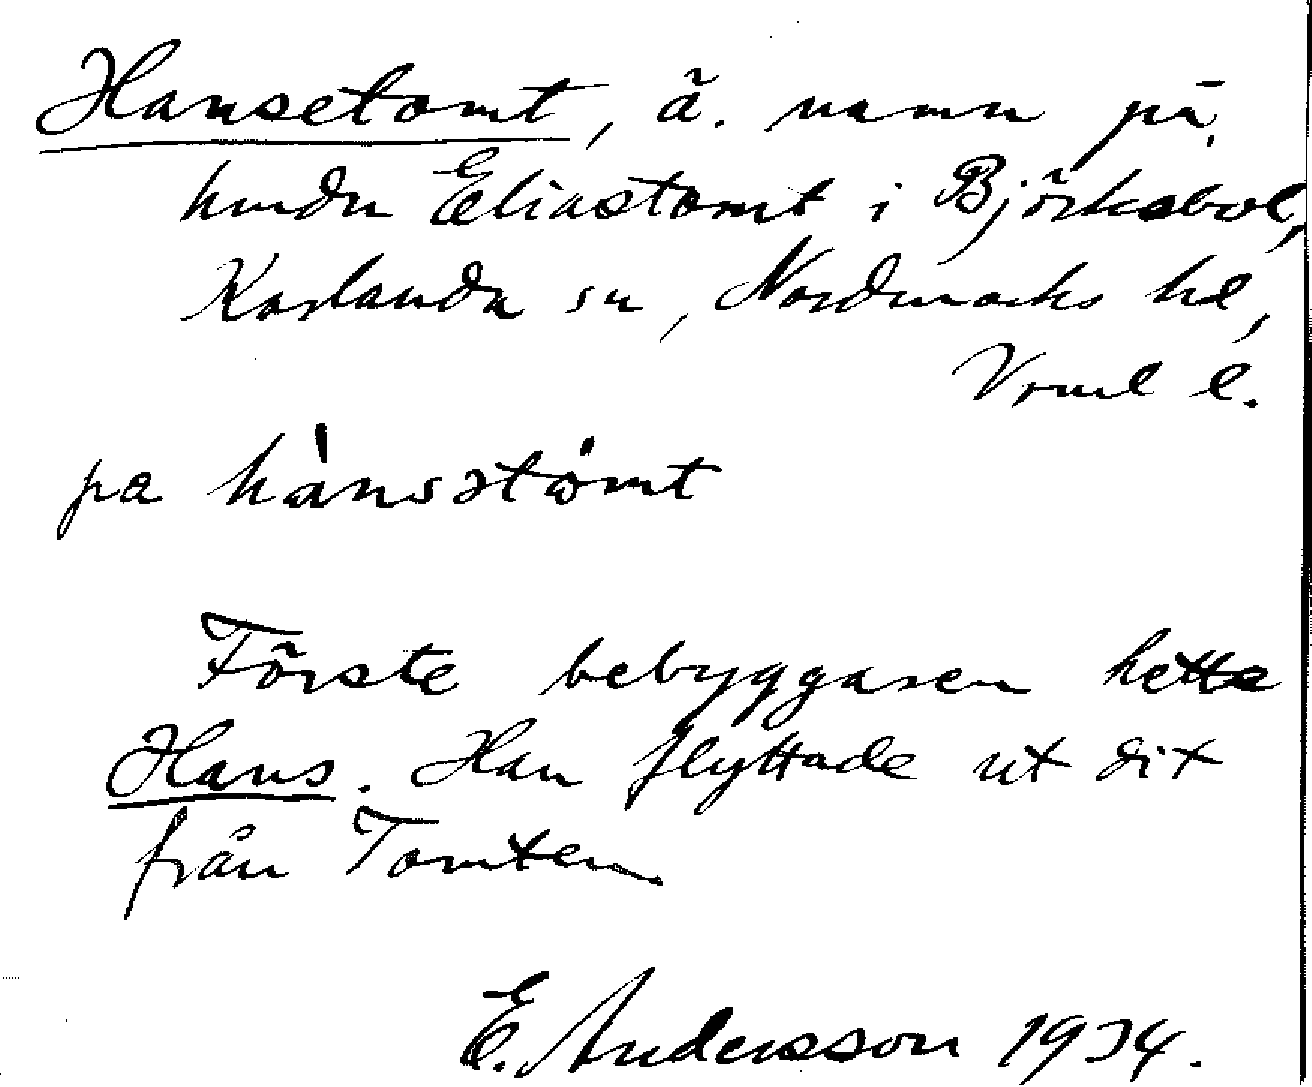 Hansetomt, ä. namn på
hmdn Eliastomt i Björksbol,
Karlanda sn, Nordmarks hd,
Vrml l.
pa hànsstömt
Förste bebyggaren hette
Hans. Han flyttade ut dit
från Tomten
E. Andersson 1934.